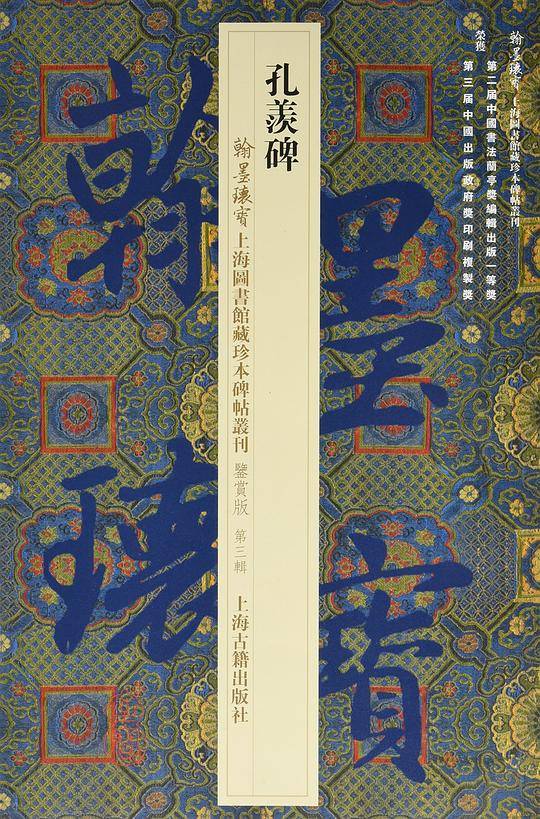 翰墨瓌寶·上海圖書館藏珍本碑帖叢刊
榮獲
第二届中國書法蘭亭獎編輯出版一等獎
第三届中國出版政府獎印刷複製獎
翰墨
瓌寶
孔羨碑
翰墨瓌寶 上海圖書館藏珍本碑帖叢刊 鑒賞版 第三輯 上海古籍出版社